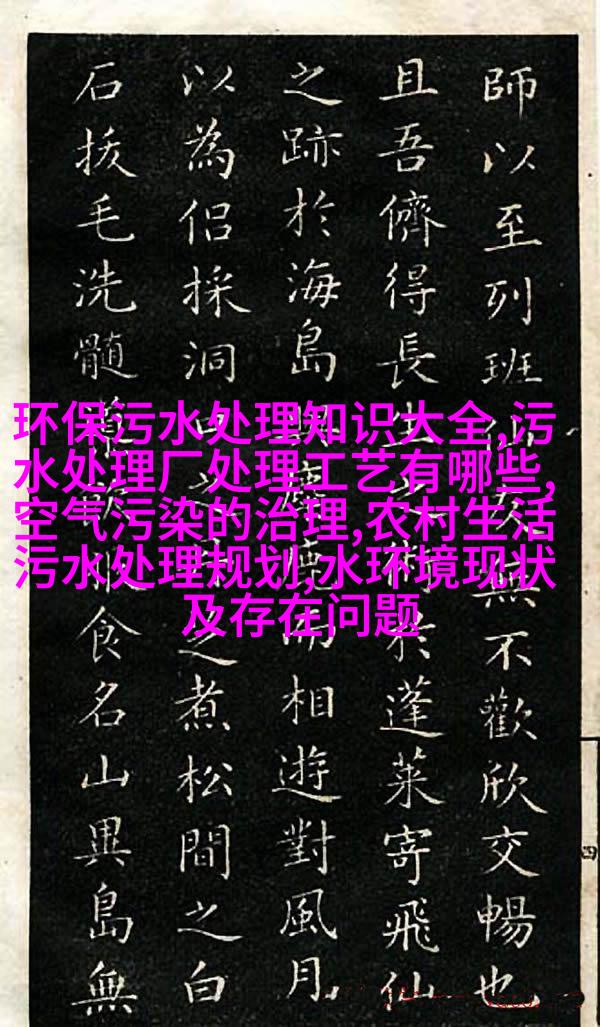 环保污水处理知识大全,污
水处理厂处理工艺有哪些,
空气污染的治理,农村生活
污水处理规划,水环境现状
及存在问题
師以至列班仙無不歡欣交暢也
且吾儕得長生於蓬萊寄飛仙
之跡於海島而相遊對風月
以為侶採洞之煮松間之白
石拔毛洗髓服食名山異島無
四